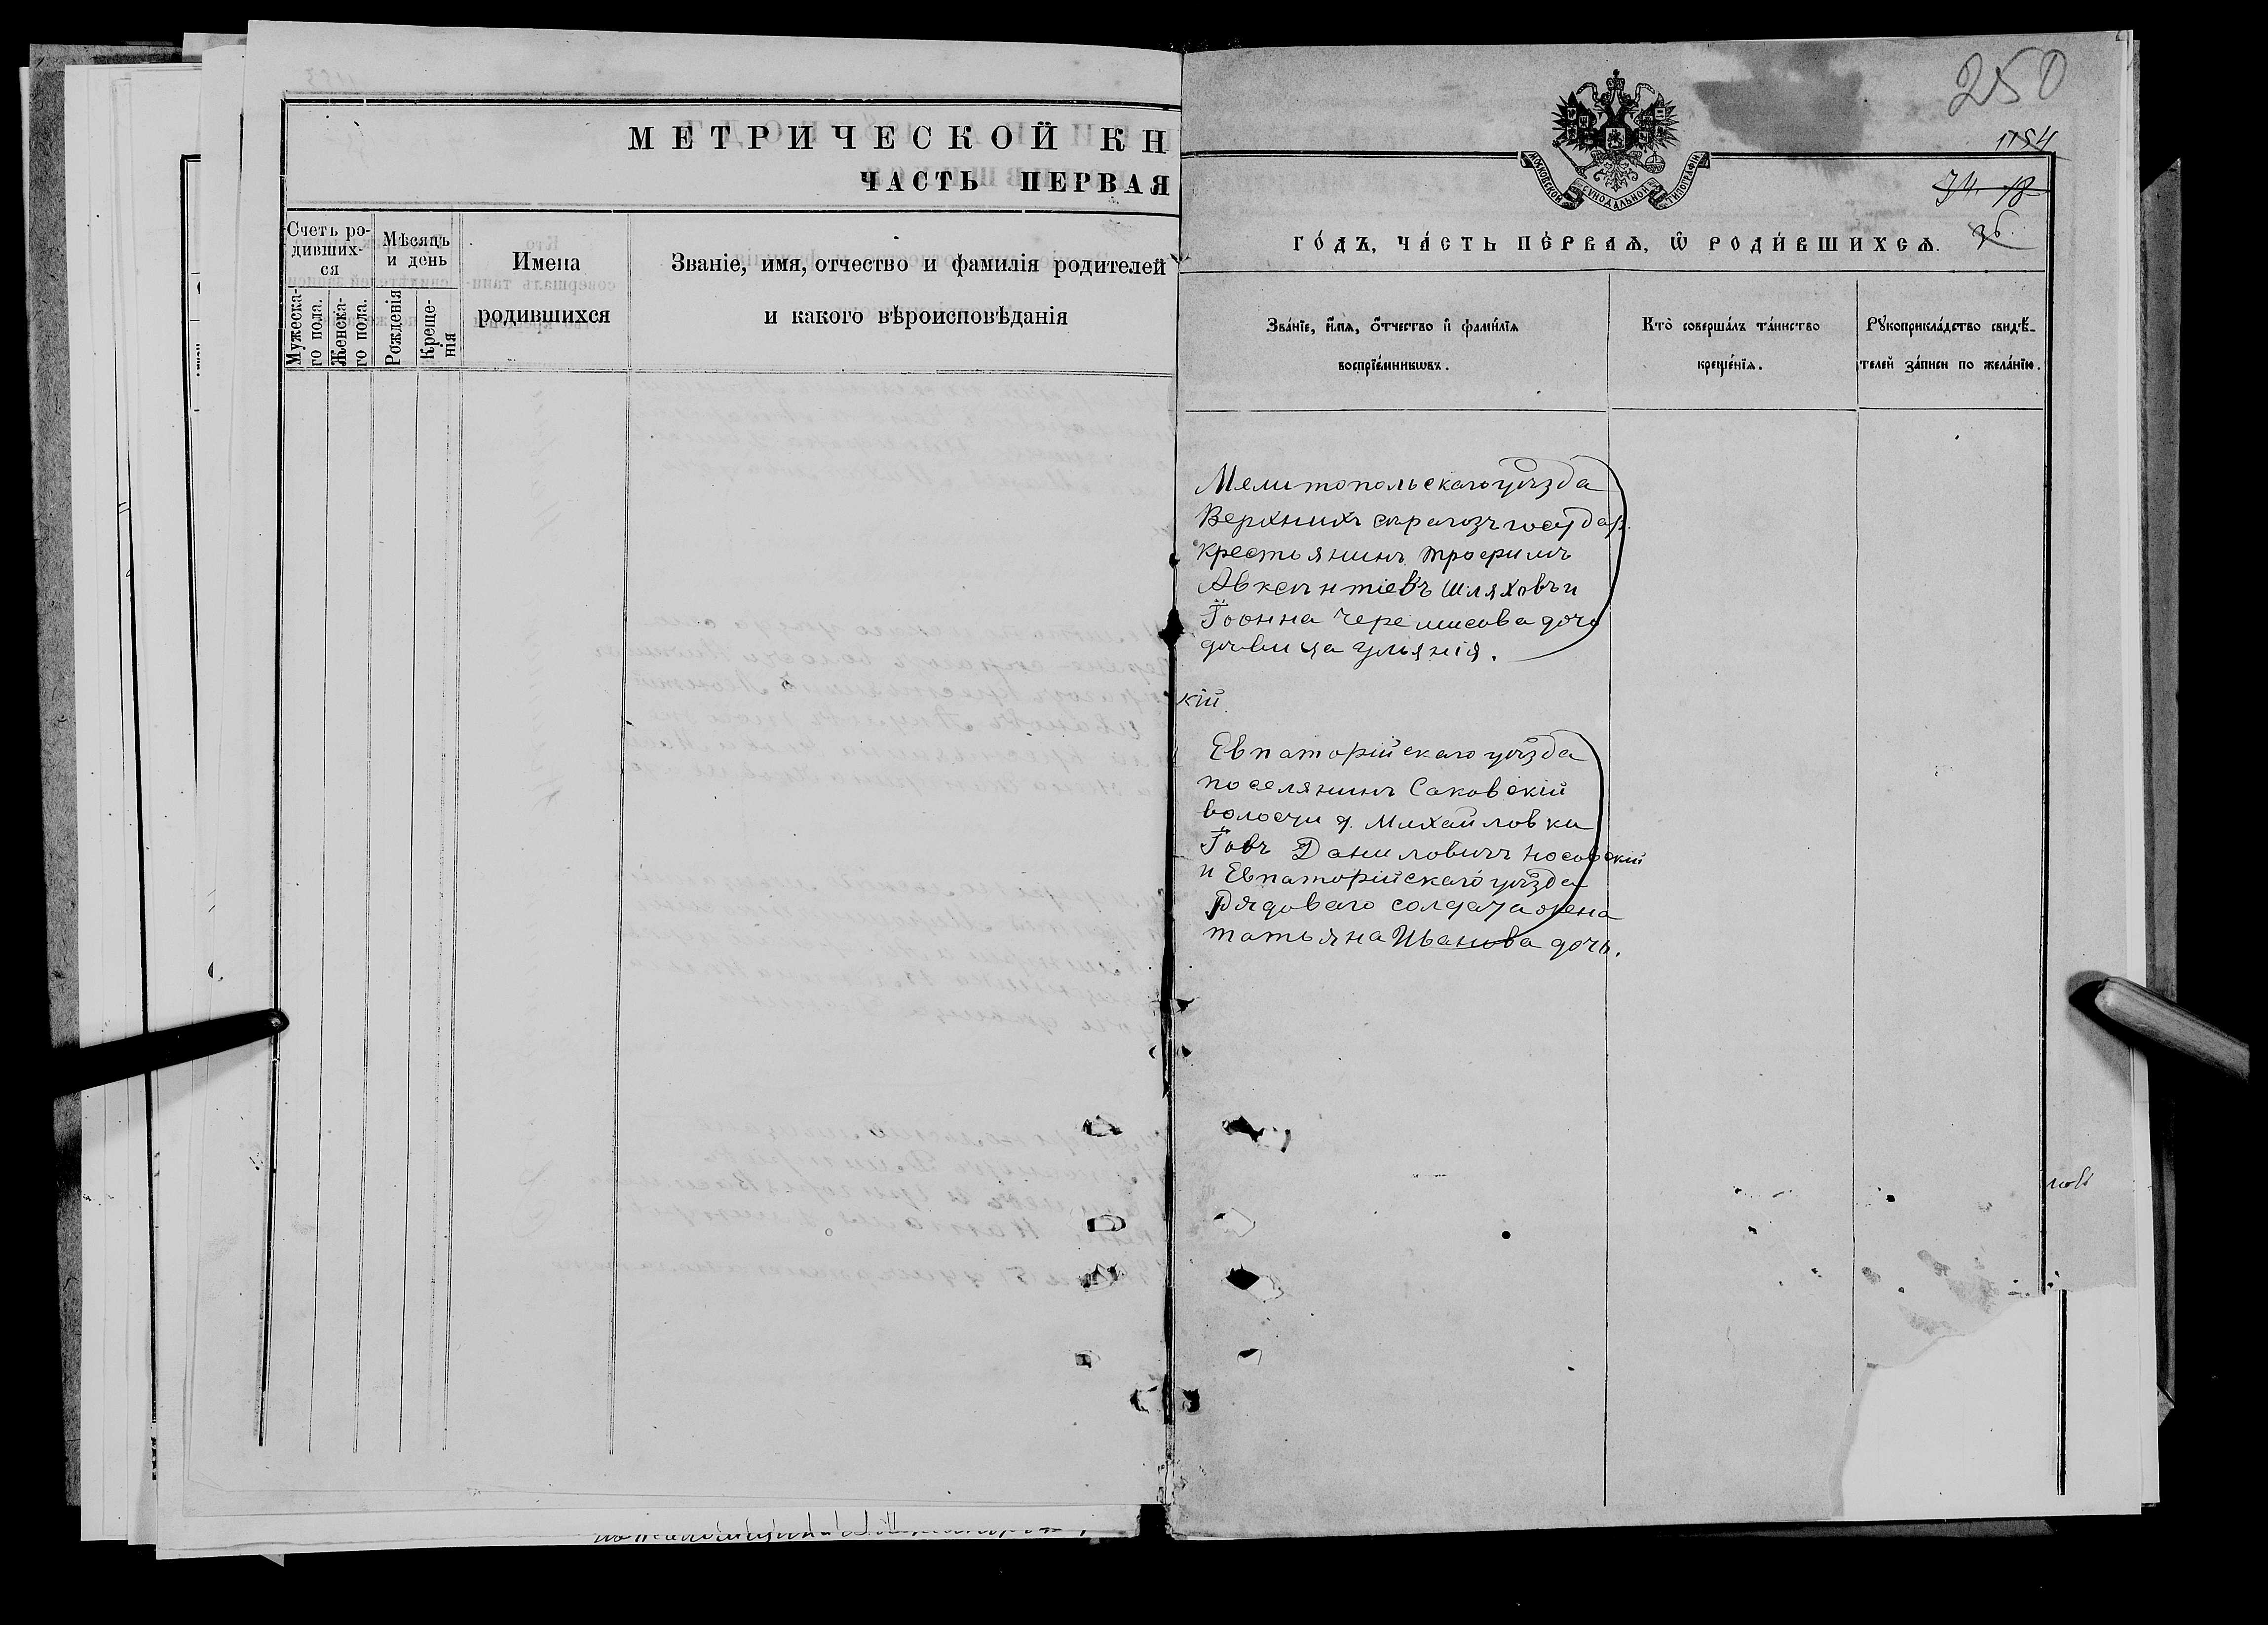 МЕТРИЧЕСКОЙ КН
ЧАСТЬ ПЕРВАЯ
Счетъ ро-
дивших-
ся
Мужеска-
го пола.
Женска-
го пола.
Мѣсяцъ
и день
Рожденія
Креще-
нія
Имена
родившихся
Званіе, имя, отчество и фамилія родителей
и какого вѣроисповѣданія
250
1154
36
МОСКОВСКОЙ СѴНОДАЛЬНОЙ ТИПОГРАФІИ
ГО́ДЪ, ЧА́СТЬ ПЕ́РВАѦ, Ѡ҆ РОДИ́ВШИХСѦ.
Зва́нїе, и҆́мѧ, ѻ҆́тчество и҆ фами́лїѧ
воспрїе́мникѡвъ.
Кто̀ соверша́лъ та́инство
креще́нїѧ.
Рꙋкоприкла́дство свидѣ́-
телей за́писи по жела́нїю.
Мелитопольскаго уѣзда
Верхнихъ Сѣрагозъ государ.
крестьянинъ Трофимъ
Авксентіевъ Шляховъ и
Іоанна Черемисова дочь
дѣвица Ульянія.
кій
Евпаторійскаго уѣзда
поселянинъ Саковскій
волости д. Михайловки
Іовъ Даниловичъ Носовскій
и Евпаторійскаго уѣзда
рядоваго солдата жена
Татьяна Иванова дочь.